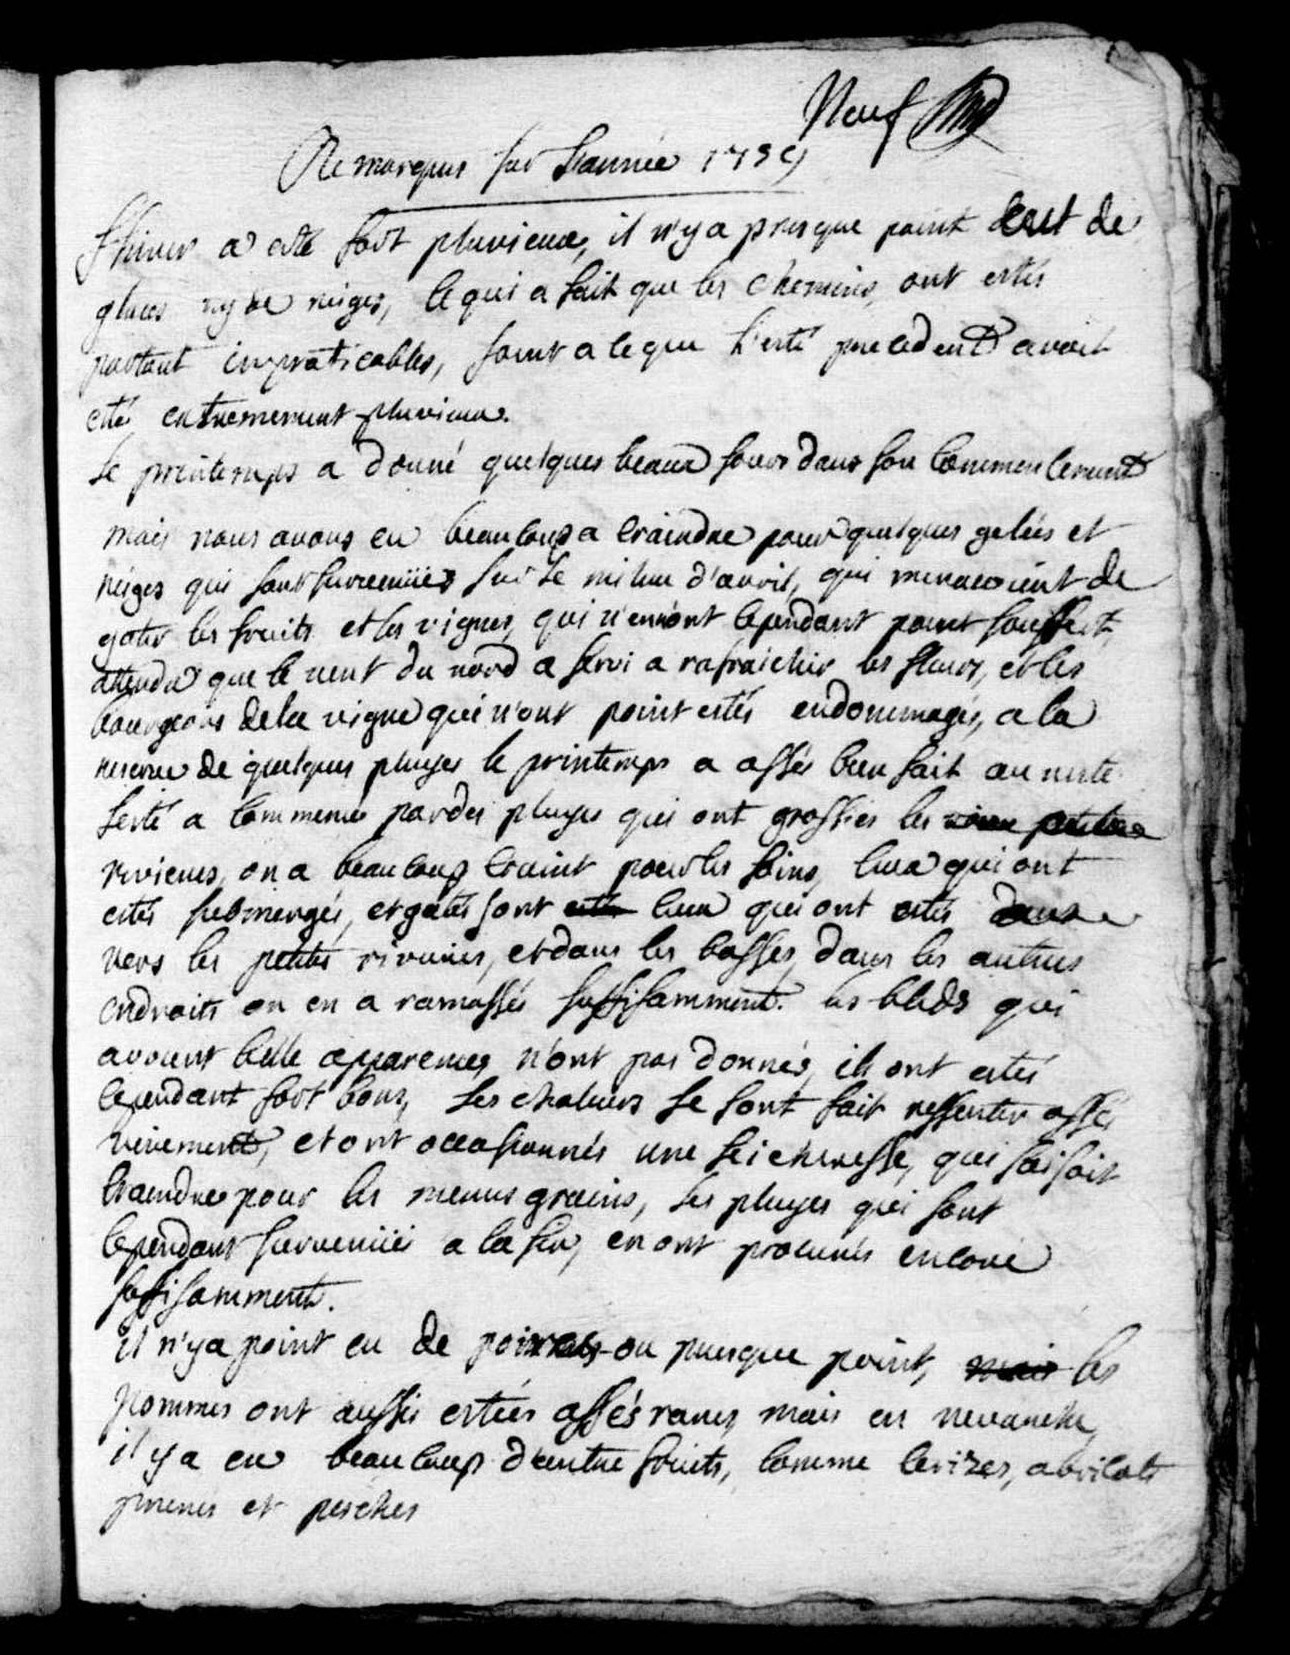 Neuf
Remarques sur L'année 1739
L'hiuer a esté fort pluvieux, il n'y a presque point eut de
glaces ny de neiges, ce qui a fait que les chemins ont estés
partout impraticables, joint a ce que l'esté precedent avoit
eté extremement pluvieux.
Le printemps a donné quelques beaux jours dans son commencement
mais nous auons eu beaucoup a craindre pour quelques gelées et
neiges qui sont survenües sur le milieu d'avril, qui menacoient de
gater les fruits et les vignes, qui n'en ont cependant point souffert,
attendu que le vent du nord a servi a rafraichir les fleurs, et les
bourgeons de la vigne qui n'ont point estés endommagés, a la
reserve de quelques pluyes le printemps a assés bien fait au reste
L'esté a commencé par des pluyes qui ont grossies les petites
rivieres, on a beaucoup craint pour les foins, ceux qui ont
estés submergés, et gatés sont ceux qui ont estés
vers les petites rivieres, et dans les basses, dans les autres
endroits on en a ramassés suffisamment. les bleds qui
avoient belle apparences n'ont pas donnés, ils ont estés
cependant fort bons, Les chaleurs se sont fait ressentir assés
vivement, et ont occasionnés une seicheresse, qui faisoit
craindre pour les menus grains, les pluyes qui sont
cependant survenües a la fin, en ont procurés encore
suffisamment.
il n'y a point eu de poires ou presque point, mais les
pommes ont aussi estées assés rares, mais en revanche
il y a eu beaucoup d'autre fruits, comme cerizes, abricots
prunes et pesches